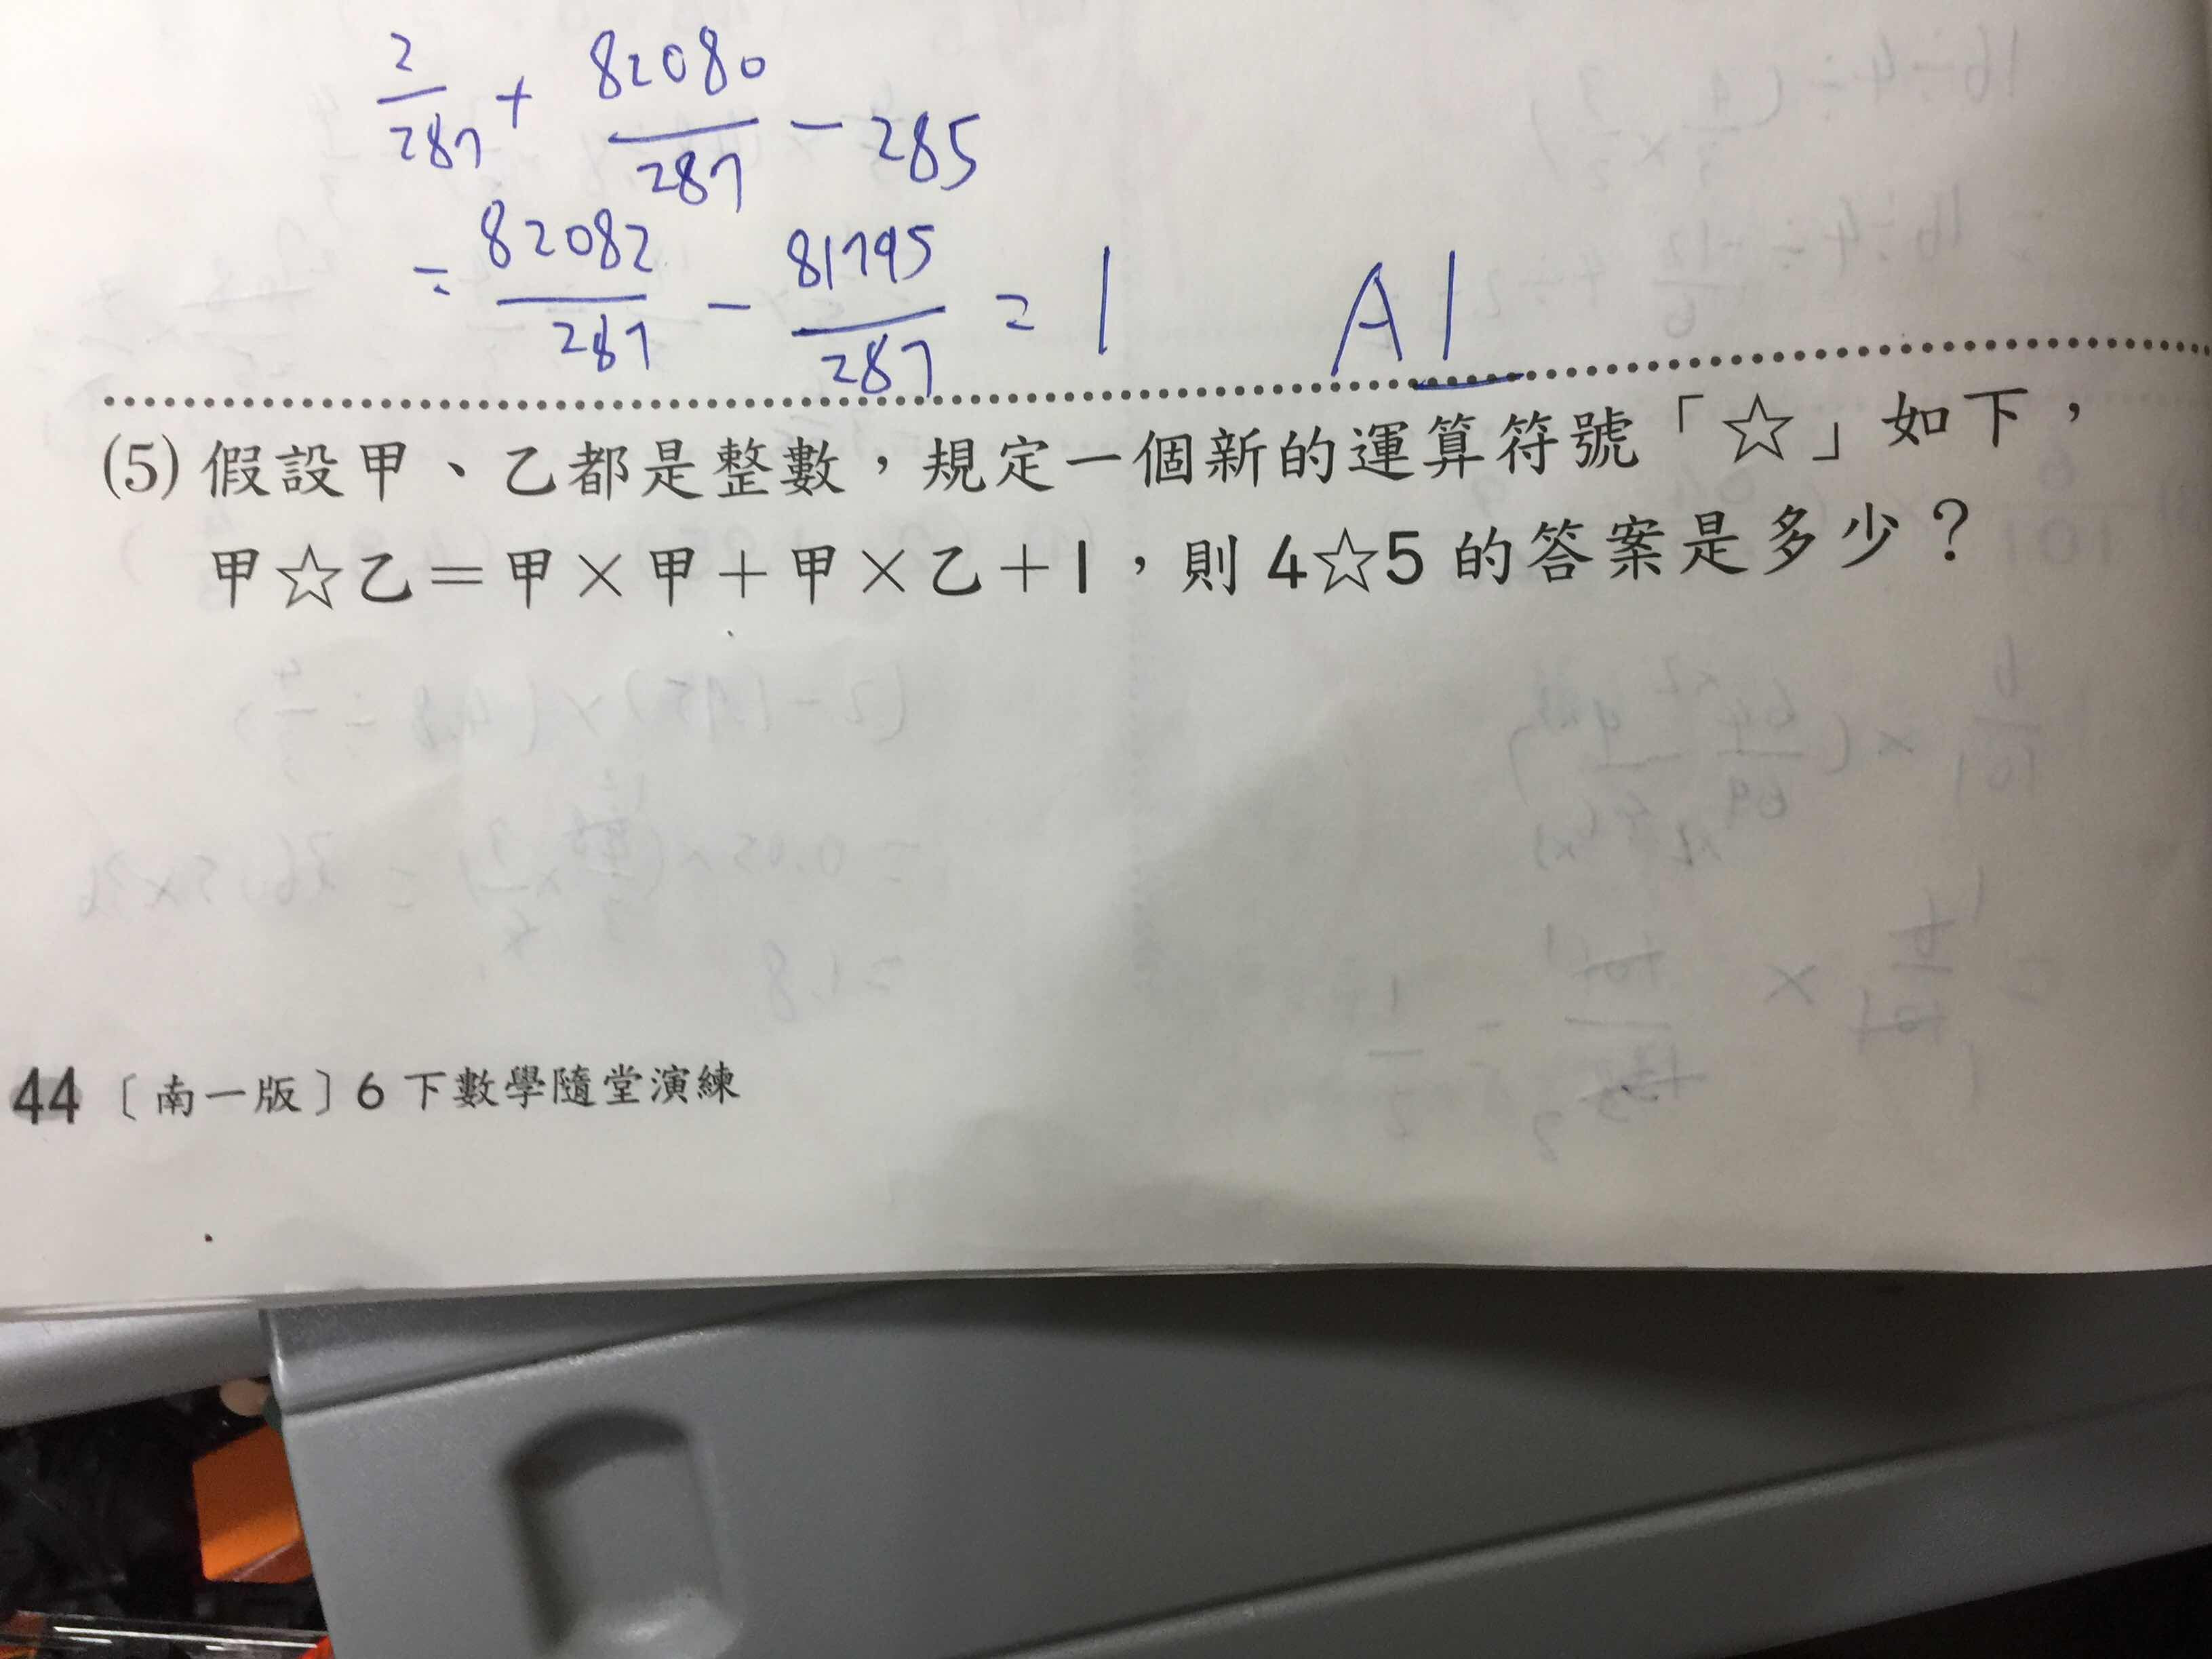 2/287 + 82080/287 - 285
= 82082/287 - 81795/287 = 1 A1
(5) 假設甲、乙都是整數，規定一個新的運算符號「☆」如下，
甲☆乙＝甲×甲＋甲×乙＋1，則 4☆5 的答案是多少？
44〔南一版〕6 下數學隨堂演練